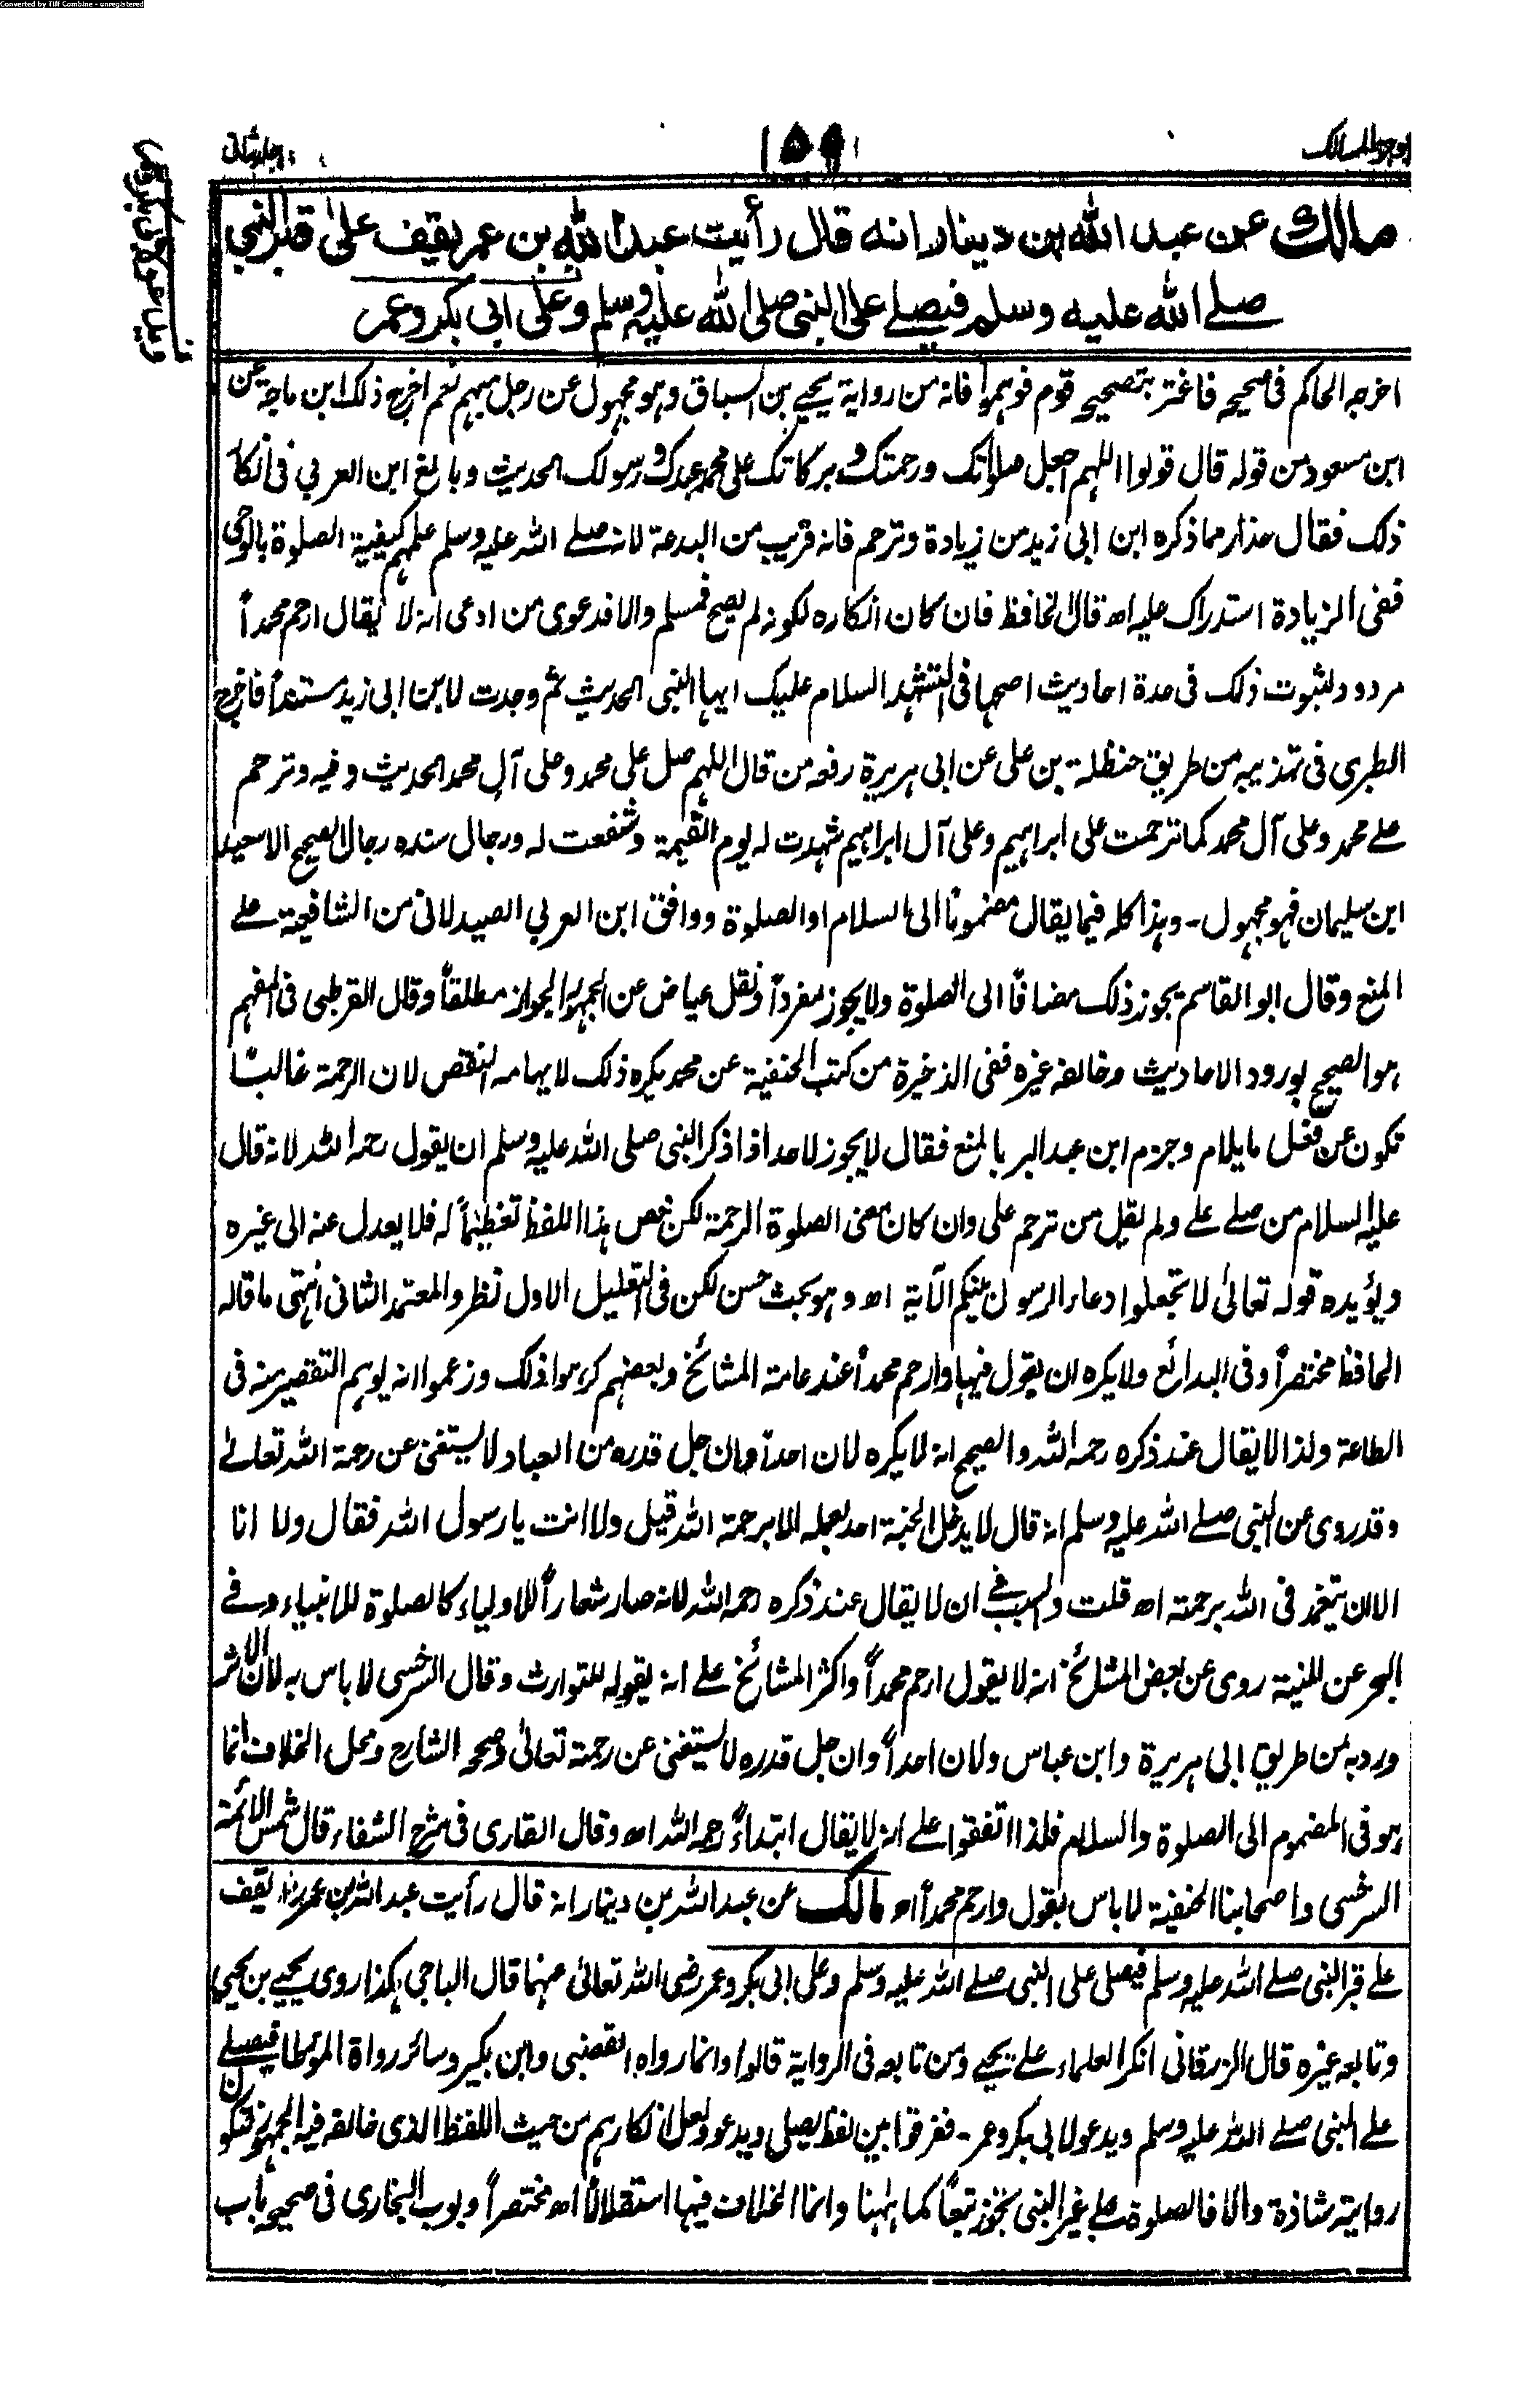 Converted by Tiff Combine - unregistered
اوجز المسالك
١٥٩
جلد ثانی
مالك عن عبد الله بن دينار انه قال رأيت عبد الله بن عمر يقف على قبر النبي
صلے الله عليه وسلم فيصلے على النبي صلى الله عليه وسلم وعلى ابى بكر وعمر
اخرجه الحاكم فى صحيحه فاغتر بتصحيحه قوم فوهموا فانه من رواية يحيے بن السباق وهو مجهول عن رجل مبهم نعم اخرج ذلك ابن ماجة عن
ابن مسعود من قوله قال قولوا اللهم اجعل صلواتك ورحمتك وبركاتك على محمد عبدك ورسولك الحديث وبالغ ابن العربي فى انكار
ذلك فقال حذار مما ذكره ابن ابى زيد من زيادة وترحم فانه قريب من البدعة لانه صلے الله عليه وسلم علمهم كيفية الصلوة بالوحى
ففى الزيادة استدراك عليه اھ قال الحافظ فان كان انكاره لكونه لم يصح فمسلم والا فدعوى من ادعى انه لا يقال ارحم محمداً
مردود لثبوت ذلك فى عدة احاديث اصحها فى التشهد السلام عليك ايها النبى الحديث ثم وجدت لابن ابى زيد مستنداً فاخرج
الطبرى فى تهذيبه من طريق حنظلة بن على عن ابى هريرة رفعه من قال اللهم صل على محمد وعلى آل محمد الحديث وفيه وترحم
علے محمد وعلى آل محمد كما ترحمت على ابراهيم وعلى آل ابراهيم شهدت له يوم القيمة وشفعت له ورجال سنده رجال الصحيح الا سعيد
ابن سليمان فهو مجهول ـ وهذا كله فيما يقال مضموماً الى السلام او الصلوة ووافق ابن العربي الصيدلانى من الشافعية علے
المنع وقال ابو القاسم يجوز ذلك مضافاً الى الصلوة ولا يجوز مفرداً ونقل عياض عن الجمهور الجواز مطلقاً وقال القرطبى فى المفهم
هو الصحيح لورود الاحاديث وخالفه غيره ففى الذخيرة من كتب الحنفية عن محمد يكره ذلك لايهامه النقص لان الرحمة غالباً
تكون عن فعل ما يلام وجزم ابن عبد البر بالمنع فقال لا يجوز لاحد اذا ذكر النبى صلى الله عليه وسلم ان يقول رحمه الله لانه قال
عليه السلام من صلے علے ولم يقل من ترحم على وان كان معنى الصلوة الرحمة لكن خص هذا اللفظ تعظيماً له فلا يعدل عنه الى غيره
ويؤيده قوله تعالى لا تجعلوا دعاء الرسول بينكم الآية اھ وهو بحث حسن لكن فى التعليل الاول نظر والمعتمد الثانى انتهى ما قاله
الحافظ مختصراً وفى البدائع ولا يكره ان يقول فيها وارحم محمداً عند عامة المشائخ وبعضهم كرهوا ذلك وزعموا انه يوهم التقصير منه فى
الطاعة ولذا لا يقال عند ذكره رحمه الله والصحيح انه لا يكره لان احداً وان جل قدره من العباد لا يستغنى عن رحمة الله تعالے
وقد روى عن النبى صلے الله عليه وسلم انه قال لا يدخل الجنة احد بعمله الا برحمة الله قيل ولا انت يا رسول الله فقال ولا انا
الا ان يتغمدنى الله برحمته اھ قلت والسبب فى ان لا يقال عند ذكره رحمه الله لانه صار شعاراً للاولياء كالصلوة للانبياء وفے
البحر عن المنية روى عن بعض المشائخ انه لا يقول ارحم محمداً واكثر المشائخ علے انه يقوله للتوارث وقال السرخسى لا باس به لان الاثر
ورد به من طريق ابى هريرة وابن عباس ولان احداً وان جل قدره لا يستغنى عن رحمة تعالى وصححه الشارح ومحل الخلاف انما
هو فى المضموم الى الصلوة والسلام فلذا اتفقوا علے انه لا يقال ابتداءً رحمه الله اھ وقال القارى فى شرح الشفاء قال شمس الائمة
السرخسى واصحابنا الحنفية لا باس بقول وارحم محمداً اھ مالك عن عبد الله بن دينار انه قال رأيت عبد الله بن عمر يقف
علے قبر النبى صلے الله عليه وسلم فيصلى على النبى صلے الله عليه وسلم وعلى ابى بكر وعمر رضى الله تعالى عنهما قال الباجى هكذا روى يحيے بن يحيى
وتابعه غيره قال الزرقانى انكر العلماء علے يحيے ومن تابعه فى الرواية قالوا وانما رواه القعنبى وابن بكير وسائر رواة الموطا فيصلے
علے النبى صلے الله عليه وسلم ويدعو لابى بكر وعمر ـ ففرقوا بين لفظ يصلى ويدعو ولعل انكارهم من حيث اللفظ الذى خالفه فيه الجمهور فتكون
روايته شاذة والا فالصلوة علے غير النبى تجوز تبعاً كما ههنا وانما الخلاف فيها استقلالاً اھ مختصراً وبوب البخارى فى صحيحه باب